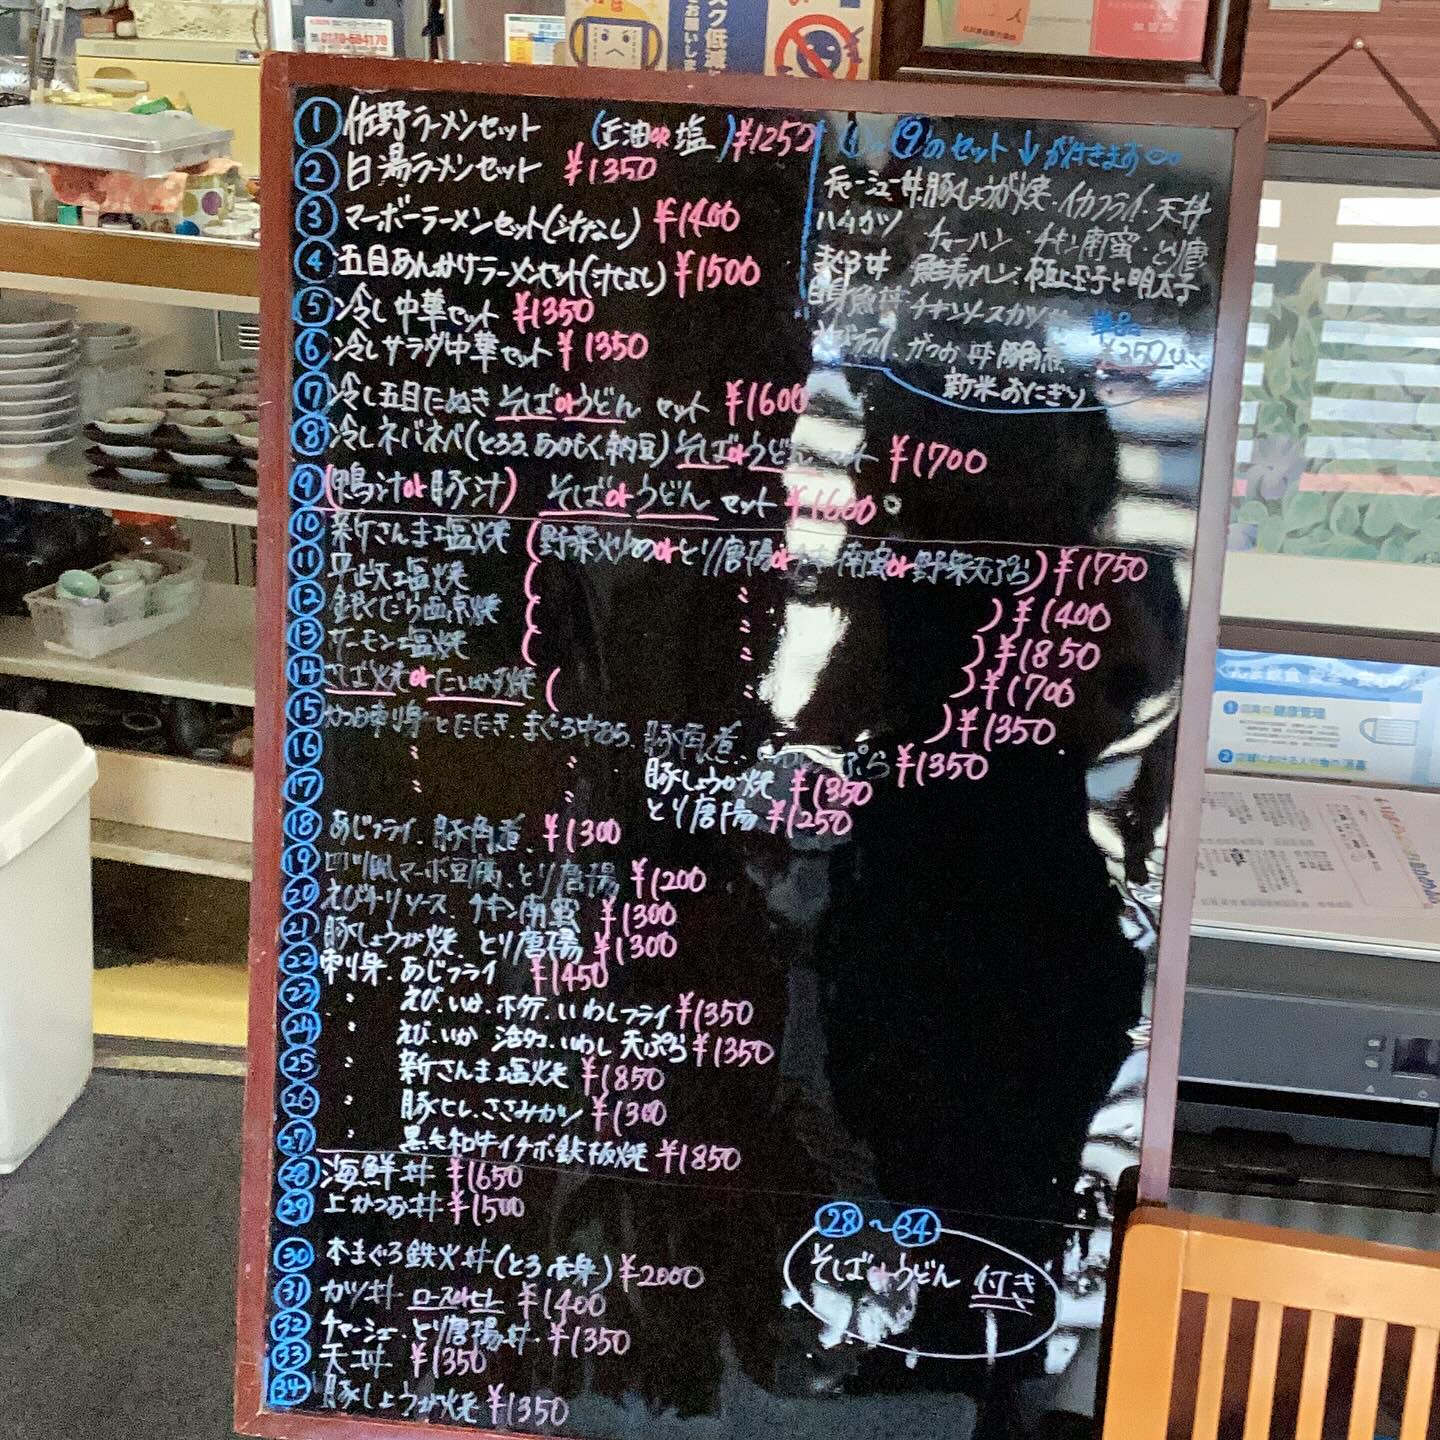 0120-594170
① 佐野ラーメンセット (正油or塩) ¥1250
② 白湯ラーメンセット ¥1350
③ マーボーラーメンセット(汁なし) ¥1400
④ 五目あんかけラーメンセット(汁なし) ¥1500
⑤ 冷し中華セット ¥1350
⑥ 冷しサラダ中華セット ¥1350
⑦ 冷し五目たぬき そばorうどん セット ¥1600
⑧ 冷しネバネバ(とろろ、めかぶ、納豆) そばorうどん セット ¥1700
⑨ (鴨汁or豚汁) そばorうどん セット ¥1600
①〜⑨のセット↓が付きます
チャーシュー丼・豚しょうが焼・イカフライ・天丼
ハムカツ チャーハン・チキン南蛮・とり唐
まぐろ丼 極上玉子と明太子
白身魚丼・チキンソースカツ
えびフライ、かつお丼、豚角煮 ¥250
新米おにぎり
⑩ 新さんま塩焼 (野菜炒めorとり唐揚orチキン南蛮or野菜天ぷら) ¥1750
⑪ 平政塩焼 ( 〃 ) ¥1400
⑫ 銀だら西京焼 ( 〃 ) ¥1850
⑬ サーモン塩焼 ( 〃 ) ¥1700
⑭ さば焼or 焼 ( 〃 ) ¥1350
⑮ かつお刺身とたたき、まぐろ中おち、豚角煮、 天ぷら ¥1350
⑯ 〃 〃 豚しょうが焼 ¥1350
⑰ 〃 〃 とり唐揚 ¥1250
⑱ あじフライ、豚角煮 ¥1300
⑲ 四川風マーボ豆腐、とり唐揚 ¥1200
⑳ えびチリソース、チキン南蛮 ¥1300
㉑ 豚しょうが焼、とり唐揚 ¥1300
㉒ 刺身、あじフライ ¥1450
㉓ 〃 えび、いか、ホタテ、いわしフライ ¥1350
㉔ 〃 えび、いか 活タコ、いわし 天ぷら ¥1350
㉕ 〃 新さんま塩焼 ¥1850
㉖ 〃 豚ヒレ、ささみカツ ¥1300
㉗ 〃 黒毛和牛イチボ鉄板焼 ¥1850
㉘ 海鮮丼 ¥1650
㉙ 上かつお丼 ¥1500
㉚ 本まぐろ鉄火丼(とろ 赤身) ¥2000
㉛ カツ丼 ロースorヒレ ¥1400
㉜ チャーシュー、とり唐揚丼 ¥1350
㉝ 天丼 ¥1350
㉞ 豚しょうが焼 ¥1350
㉘〜㉞
そばorうどん 付き
① 店員の健康管理
②